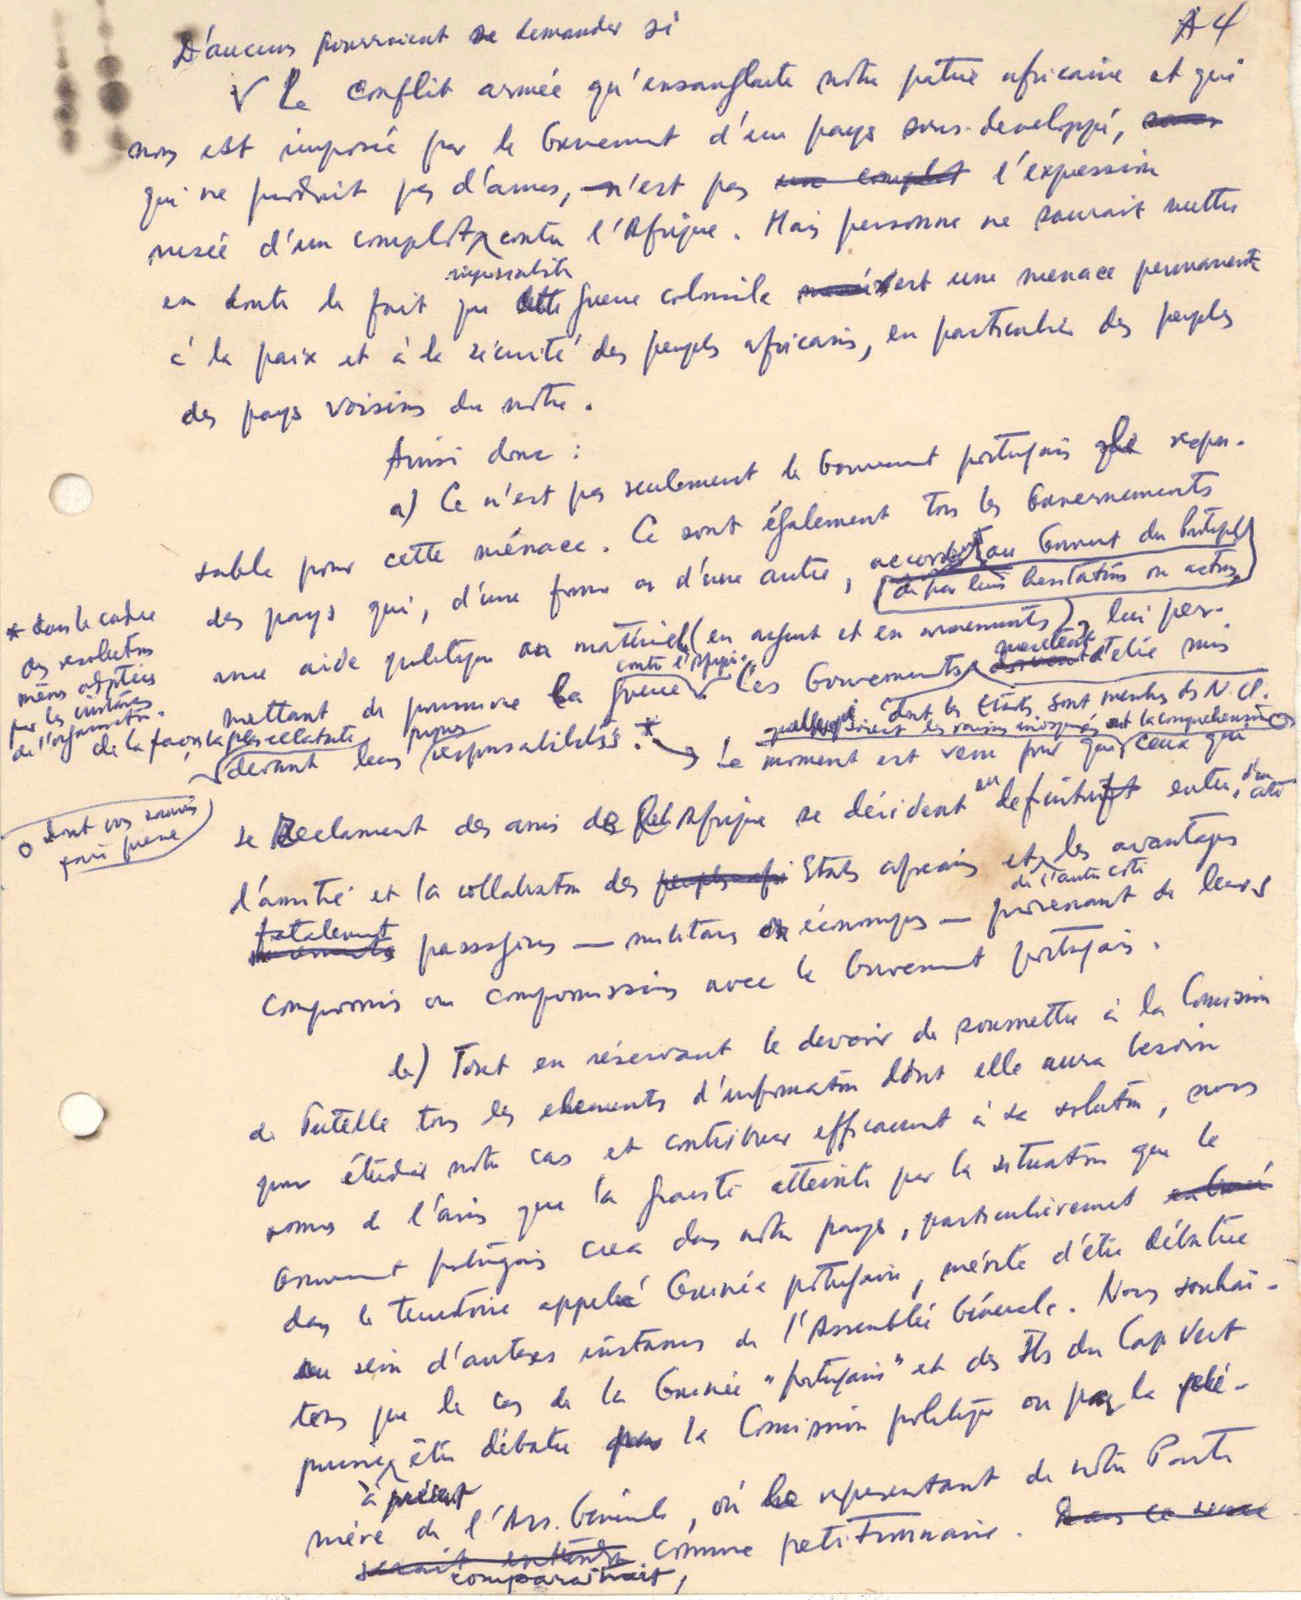 A4
D'aucuns pourraient se demander si
le conflit armée qu'ensanglante notre patrie africaine et qui
nous est imposée par le Gouvernement d'un pays sous-developpé,
qui ne produit pas d'armes, n'est pas un complot l'expression
rusée d'un complot contre l'Afrique. Mais personne ne saurait mettre
imperialiste
en doute le fait que cette guerre coloniale est une menace permanente
à la paix et à la sécurité des peuples africains, en particulier des peuples
des pays voisins du nôtre.
Ainsi donc :
a) Ce n'est pas seulement le Gouvernement portugais respon-
sable pour cette ménace. Ce sont également tous les Gouvernements
des pays qui, d'une forme ou d'une autre, accordent au Gouvernt du Portugal
de par leurs hesitations ou actions
une aide politique ou matérielle (en argent et en armements), lui per-
contre l'Afrique
mettant de poursuivre la guerre. Ces Gouvernements
dont les Etats sont membres des N.U.
de la façon la plus eclatante
devant leurs propres responsabilités. *
* dans le cadre
des resolutions
mêmes adoptées
par les instances
de l'organisation.
quelles que soient les raisons invoquées et la comprehension
dont nous savons
faire preuve
Le moment est venu pour que ceux qui
se reclament des amis de l'Afrique se décident en definitif entre, d'un côté
l'amitié et la collaboration des peuples afri Etats africains et les avantages
de l'autre côté
fatalement
passagers — militaires ou économiques — provenant de leurs
compromis ou compromissions avec le Gouvernement portugais.
b) Tout en réservant le devoir de soumettre à la Commission
de Tutelle tous les elements d'information dont elle aura besoin
pour étudier notre cas et contribuer efficacement à sa solution, nous
sommes de l'avis que la gravité atteinte par la situation que le
Gouvernement portugais crea dans notre pays, particulièrement
dans le territoire appelé Guinée portugaise, mérite d'être débattue
au sein d'autres instances de l'Assemblée Générale. Nous souhai-
tons que le cas de la Guinée "portugaise" et des Iles du Cap Vert
puisse être débattu par la Commission politique ou par la plé-
à présent
nière de l'Ass. Générale, où le representant de notre Parti
serait entendu comme petitionnaire. Dans ce sens
comparaitrait,